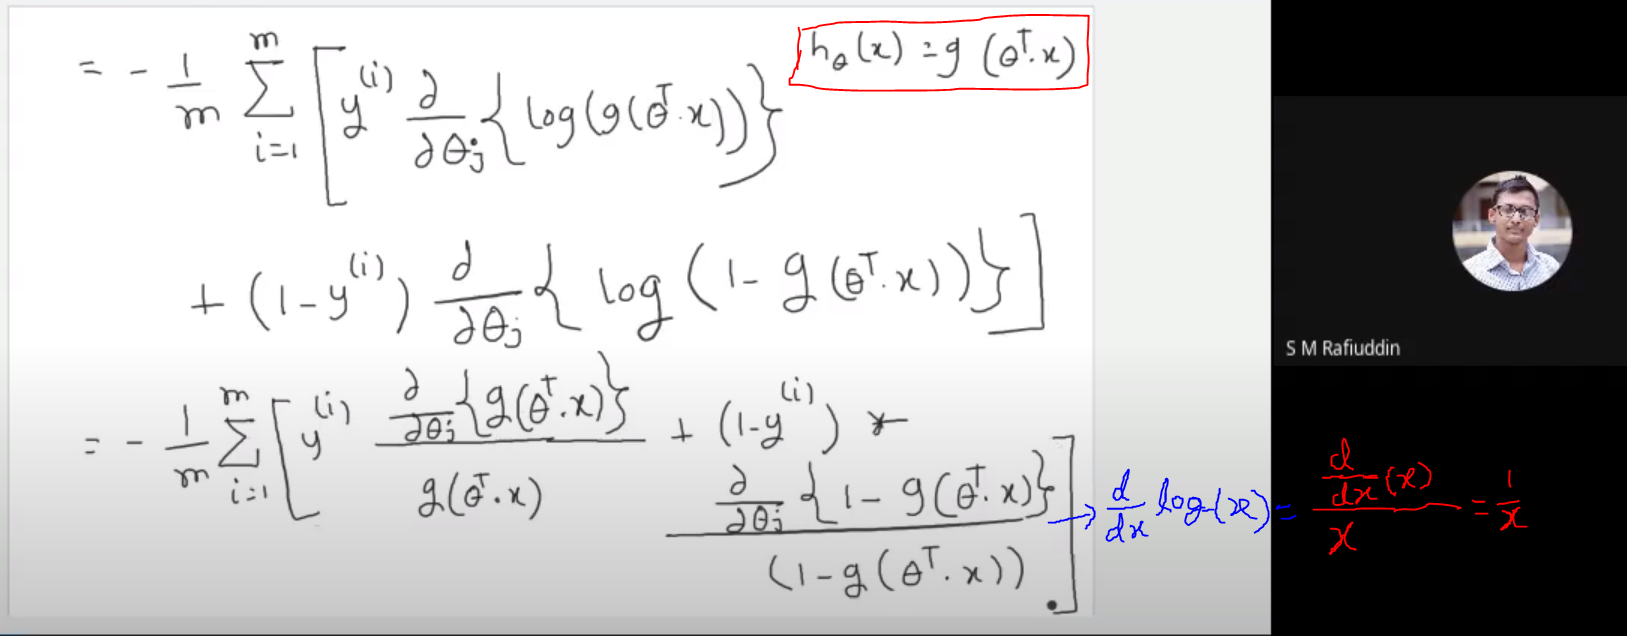 h_θ(x) = g (θ^T.x)
= - 1/m Σ_{i=1}^{m} [ y^{(i)} ∂/∂θ_j { log(g(θ^T.x)) }
+ (1-y^{(i)}) ∂/∂θ_j { log (1- g (θ^T.x)) } ]
= - 1/m Σ_{i=1}^{m} [ y^{(i)} ∂/∂θ_j {g(θ^T.x)} / g(θ^T.x) + (1-y^{(i)}) * ∂/∂θ_j {1- g(θ^T.x)} / (1-g(θ^T.x)) ]
→ d/dx log(x) = d/dx (x) / x = 1/x
S M Rafiuddin